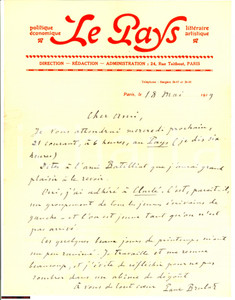 politique
économique
Le Pays
littéraire
artistique
DIRECTION - RÉDACTION - ADMINISTRATION : 24, Rue Taitbout, PARIS
Paris, le 18 Mai 1919
Cher Ami,
Je vous attendrai mercredi prochain,
21 courant, à 6 heures, au Pays (je dis six
heures)
Dites à l'ami Batilliat que j'aurai grand
plaisir à le revoir.
Oui, j'ai adhéré à Clarté. C'est, paraît-il,
un groupement de tous les jeunes écrivains de
gauche - et l'on est jeune tant qu'on n'est
pas arrivé.
Ces quelques beaux jours de printemps m'ont
un peu ranimé. Je travaille et me remue
beaucoup, et j'évite de réfléchir pour ne pas
sombrer dans un abîme de dégoût
à vous de tout cœur